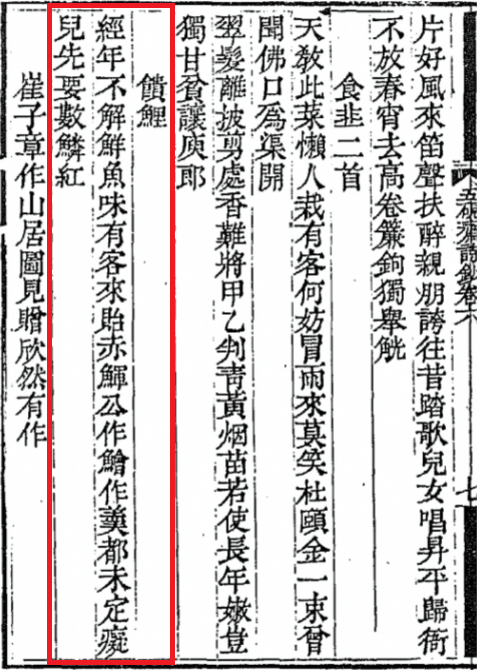 片好風來笛聲扶醉親朋誇往昔踏歌兒女唱昇平歸衙
不放春宵去高卷簾鉤獨舉觥
食韭二首
天敎此菜懶人栽有客何妨冒雨來莫笑杜頤金一束曾
聞佛口爲渠開
翠髮離披剪處香難將甲乙判靑黃烟苗若使長年嫩豈
獨甘貧讓庾郎
饋鯉
經年不解鮮魚味有客來貽赤鯶公作鱠作羹都未定癡
兒先要數鱗紅
崔子章作山居圖見贈欣然有作
詩鈔卷六
七